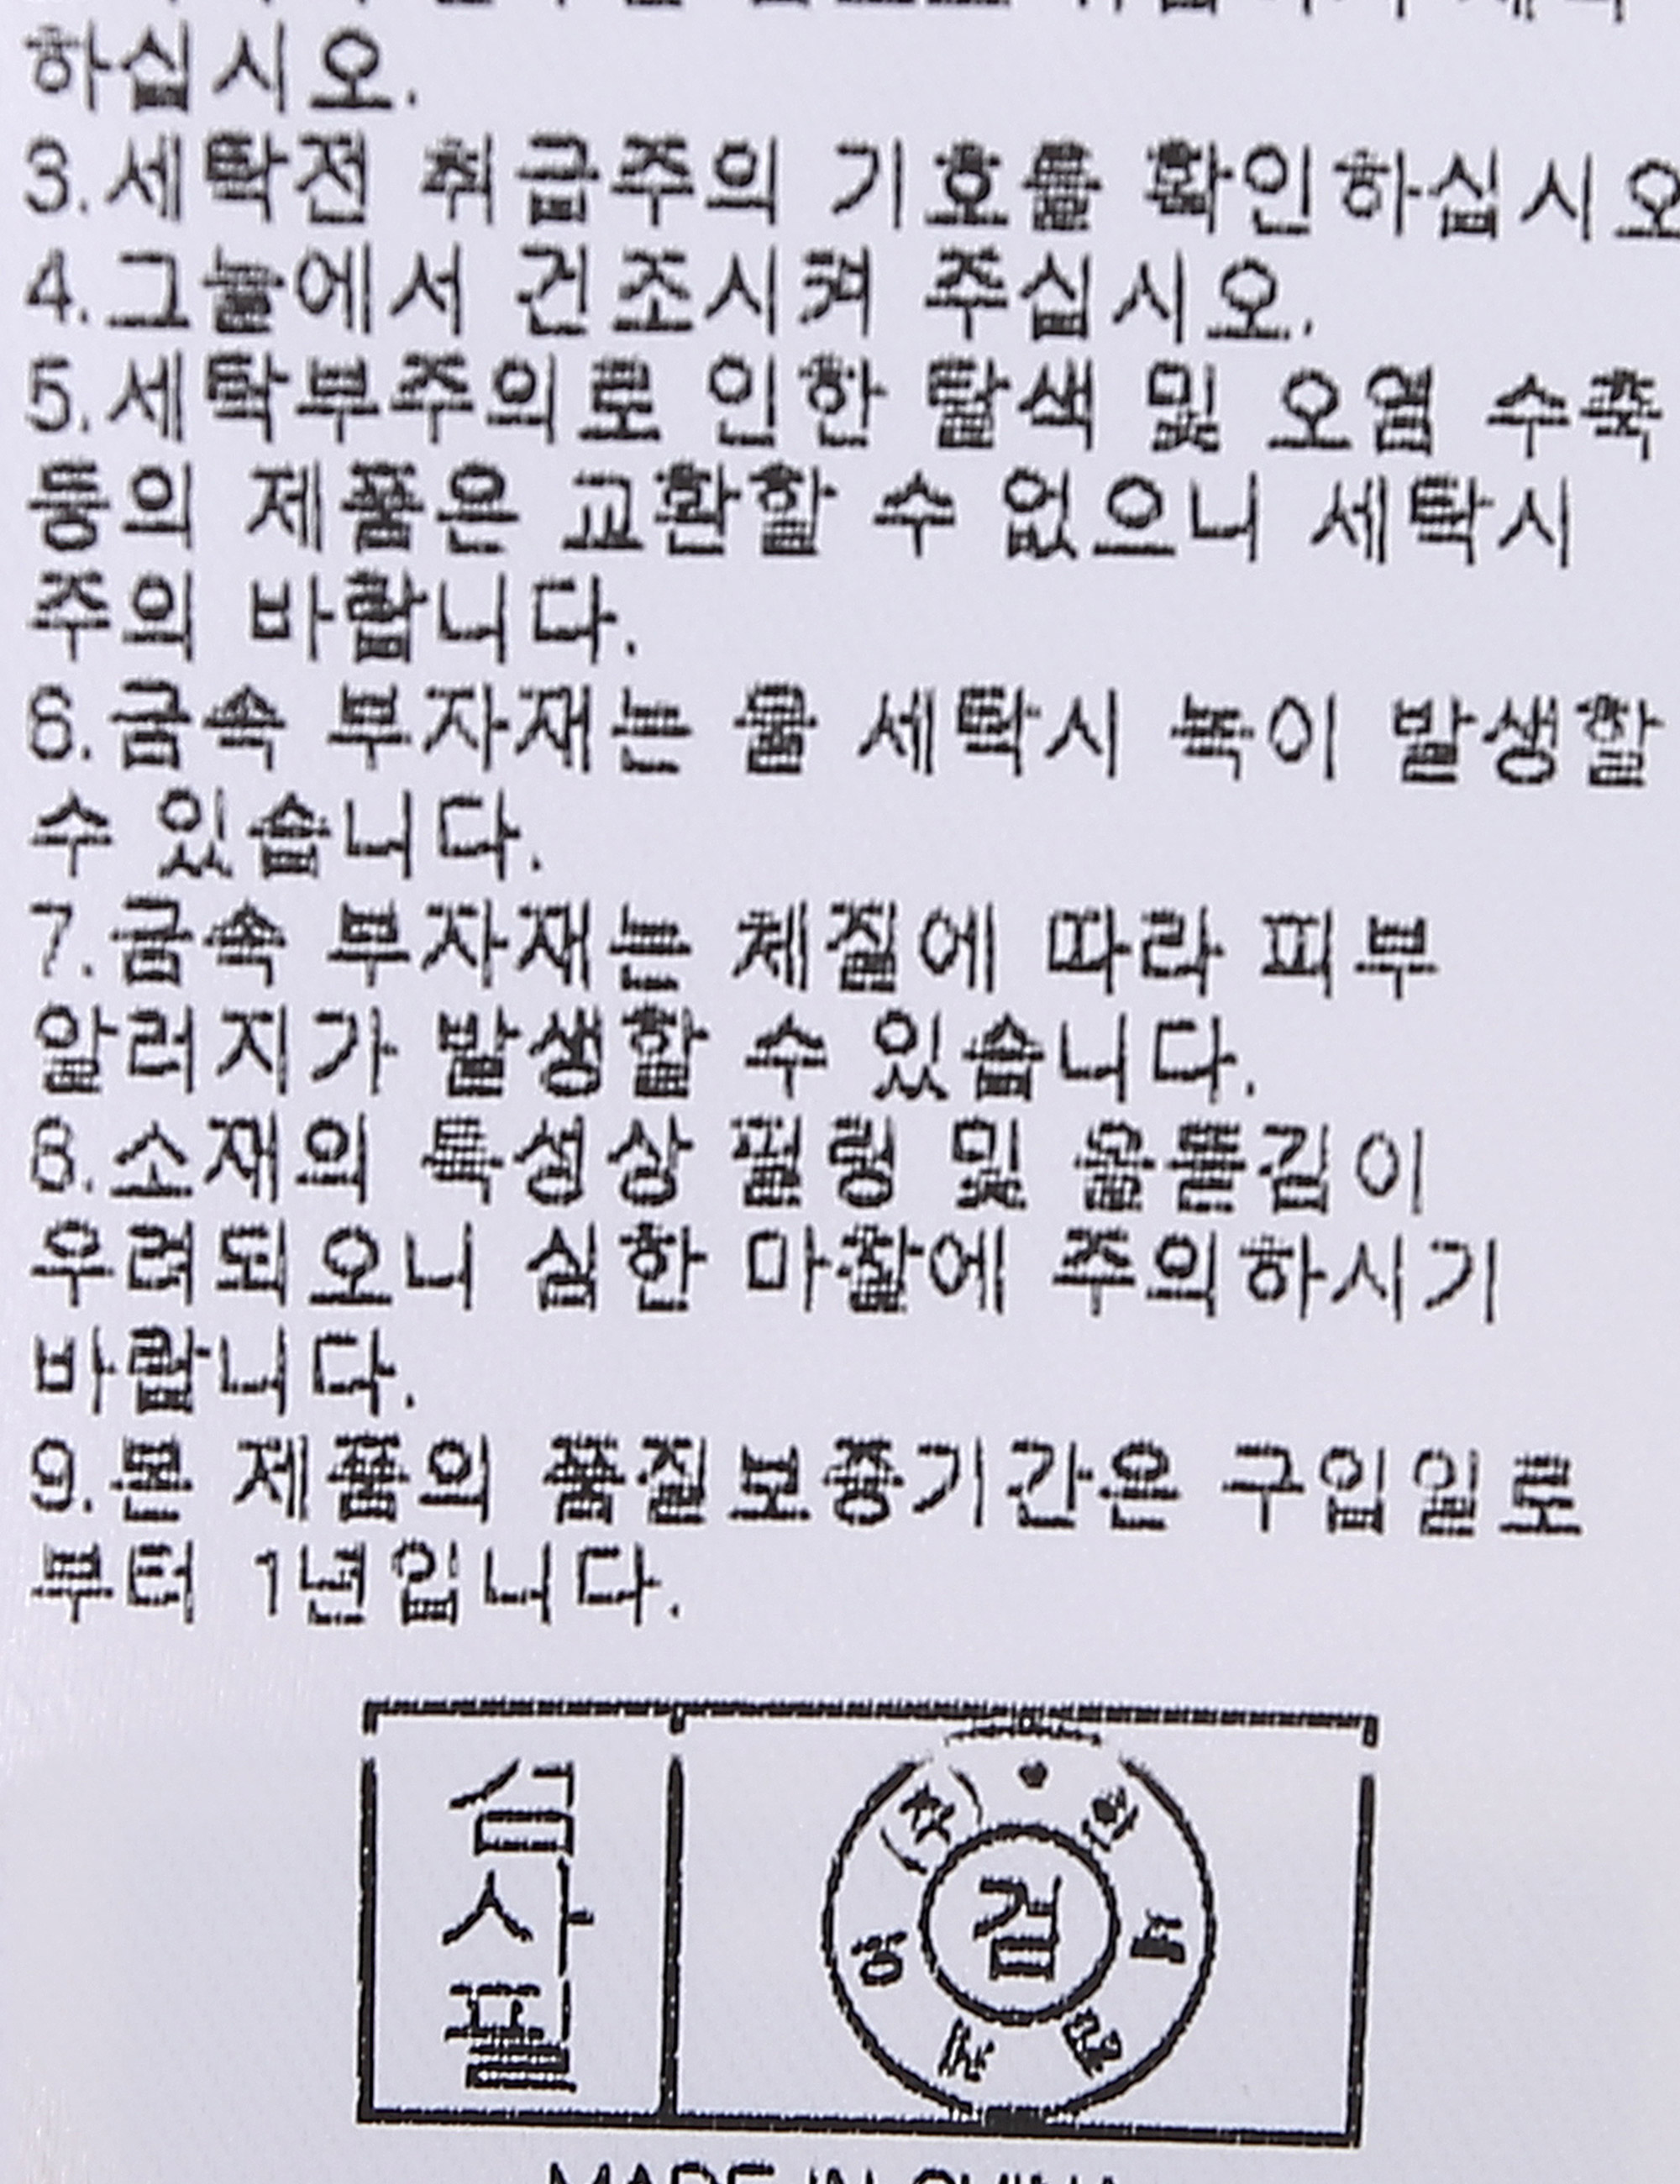 하십시오.
3.세탁전 취급주의 기호를 확인하십시오
4.그늘에서 건조시켜 주십시오.
5.세탁부주의로 인한 탈색 및 오염 수축
등의 제품은 교환할 수 없으니 세탁시
주의 바랍니다.
6.금속 부자재는 물 세탁시 녹이 발생할
수 있습니다.
7.금속 부자재는 체질에 따라 피부
알러지가 발생할 수 있습니다.
8.소재의 특성상 필링 및 올뜯김이
우려되오니 심한 마찰에 주의하시기
바랍니다.
9.본 제품의 품질보증기간은 구입일로
부터 1년입니다.
검사필
검
MADE IN CHINA